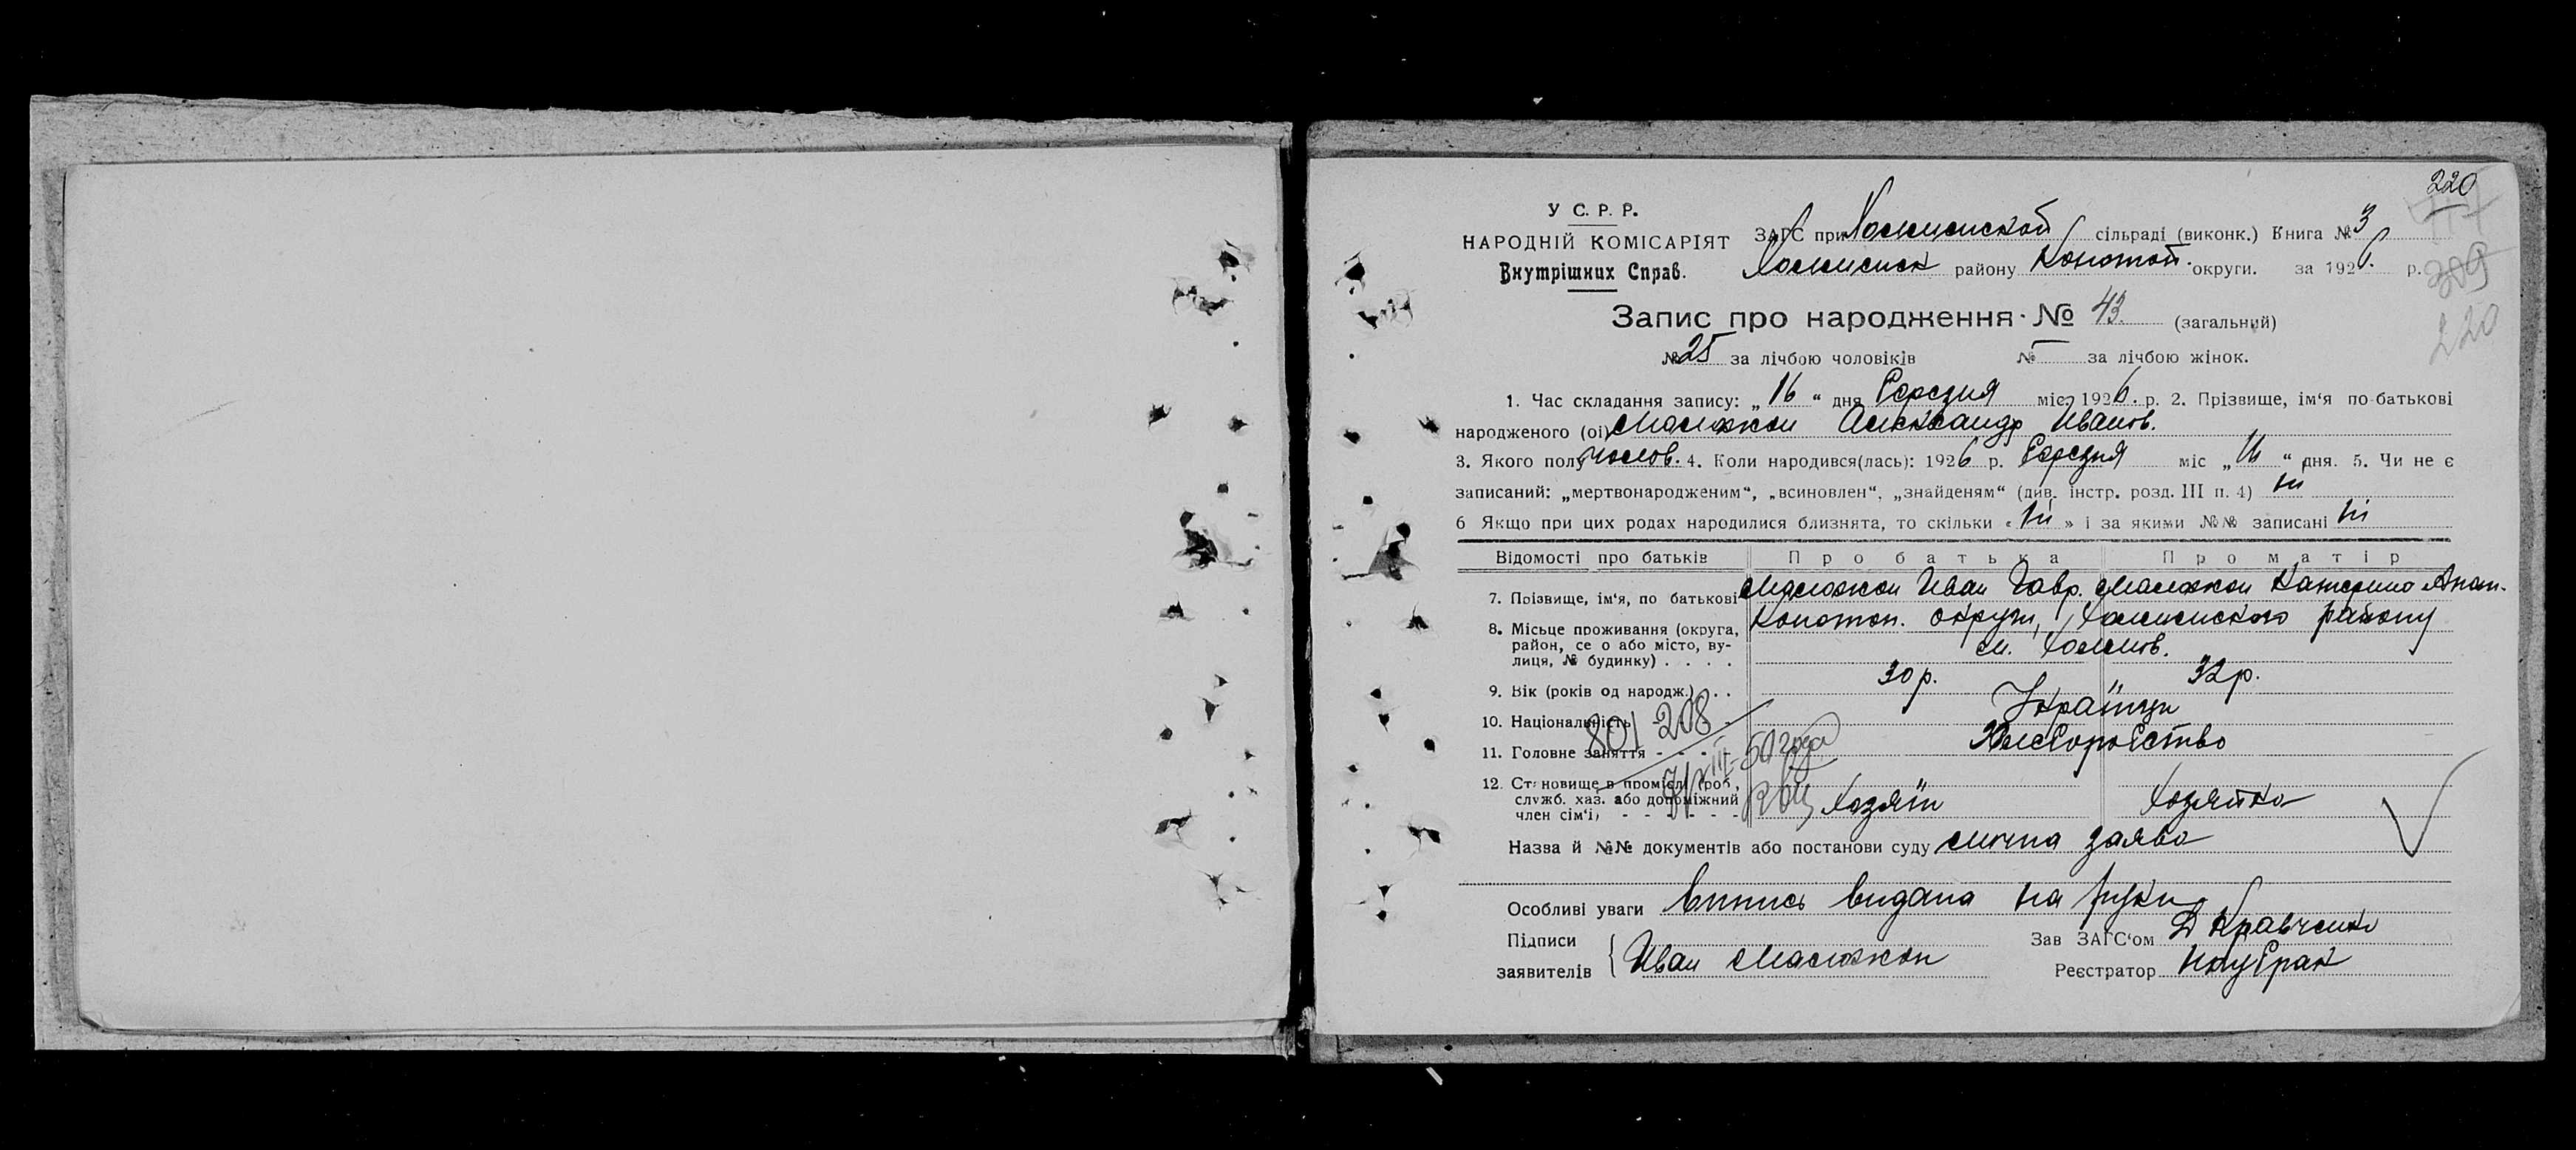 220
У С. Р. Р.
НАРОДНІЙ КОМІСАРІЯТ
Внутрішних Справ.
ЗАГС при Хоминской сільраді (виконк.) Книга № 3
району Конотоп. округи. за 1926. р.
309
220
Запис про народження № 43. (загальний)
№ 25 за лічбою чоловіків № — за лічбою жінок.
1. Час складання запису: „ 16 “ дня Березня міс. 1926. р. 2. Прізвище, ім‘я по-батькові
народженого (ої) Александр Иванов.
3. Якого полу чолов. 4. Коли народився(лась): 1926 р. Березня міс „ “ дня. 5. Чи не є
записаний: „мертвонародженим“, „всиновлен“, „знайденям“ (див. інстр. розд. III п. 4) ні
6 Якщо при цих родах народилися близнята, то скільки « ні » і за якими №№ записані ні
Відомості про батьків Про батька Про матір
7. Прізвище, ім‘я, по батькові Иван Гавр. Катерина
8. Місьце проживання (округа, район, се о або місто, вулиця, № будинку) . . . . Конотоп. округи, району
9. Вік (років од народж.) . . 30 р. 32 р.
10. Національність Українци
801 208
11. Головне заняття - - - Хлеборобство
III-50 года
12. Становище в промісл. (роб., служб. хаз. або допоміжний член сім‘ї) - - - - - - Хозяїн Хозяйка
Назва й №№ документів або постанови суду заява
Особливі уваги Випись видана на руки
Підписи
заявителів { Иван
Зав ЗАГС‘ом Д Кравченко
Реєстратор